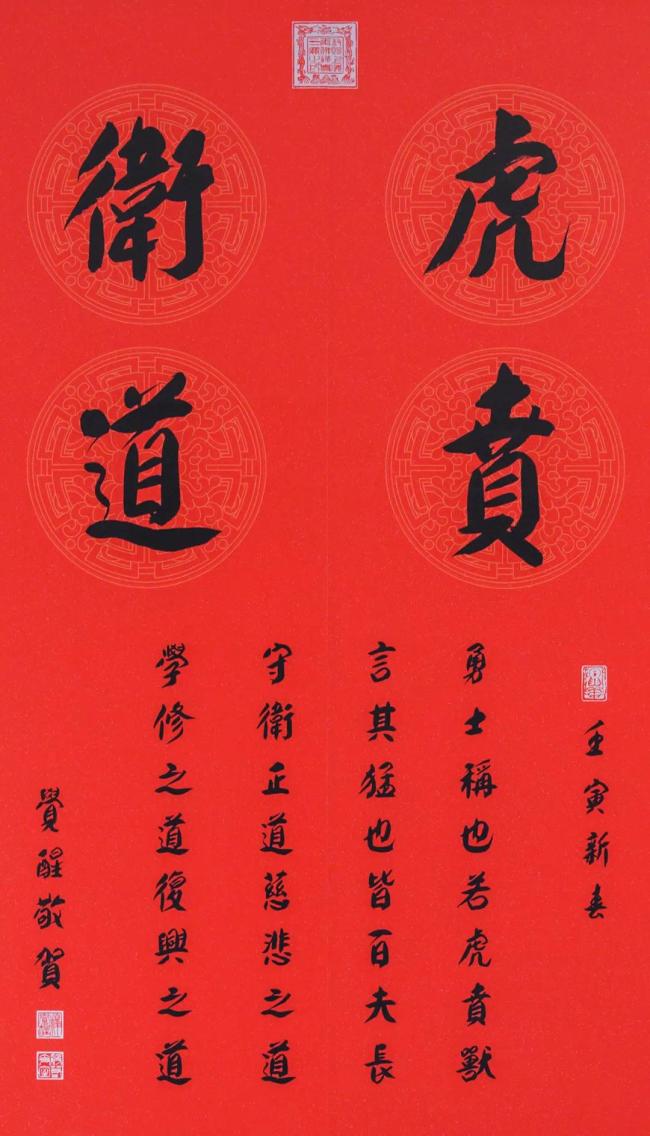 虎賁
衛道
壬寅新春
勇士稱也若虎賁獸
言其猛也皆百夫長
守衛正道慈悲之道
學修之道復興之道
覺醒敬賀